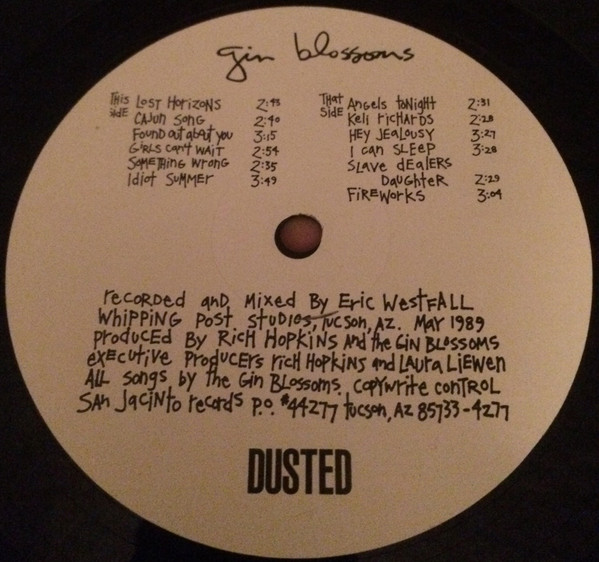 gin blossoms
This Side
Lost Horizons 2:43
Cajun Song 2:40
Found out about you 3:15
Girls can't wait 2:54
Something Wrong 2:35
Idiot Summer 3:49
That Side
Angels tonight 2:31
Keli Richards 2:28
Hey Jealousy 3:27
I can sleep 3:28
Slave dealers
Daughter 2:29
Fireworks 3:04
recorded and Mixed By Eric Westfall
Whipping Post Studios, Tucson, AZ. May 1989
produced By Rich Hopkins and the Gin Blossoms
executive Producers rich Hopkins and Laura Liewen
All songs by the Gin Blossoms. copywrite control
San Jacinto records p.o. #44277 tucson, AZ 85733-4277
DUSTED